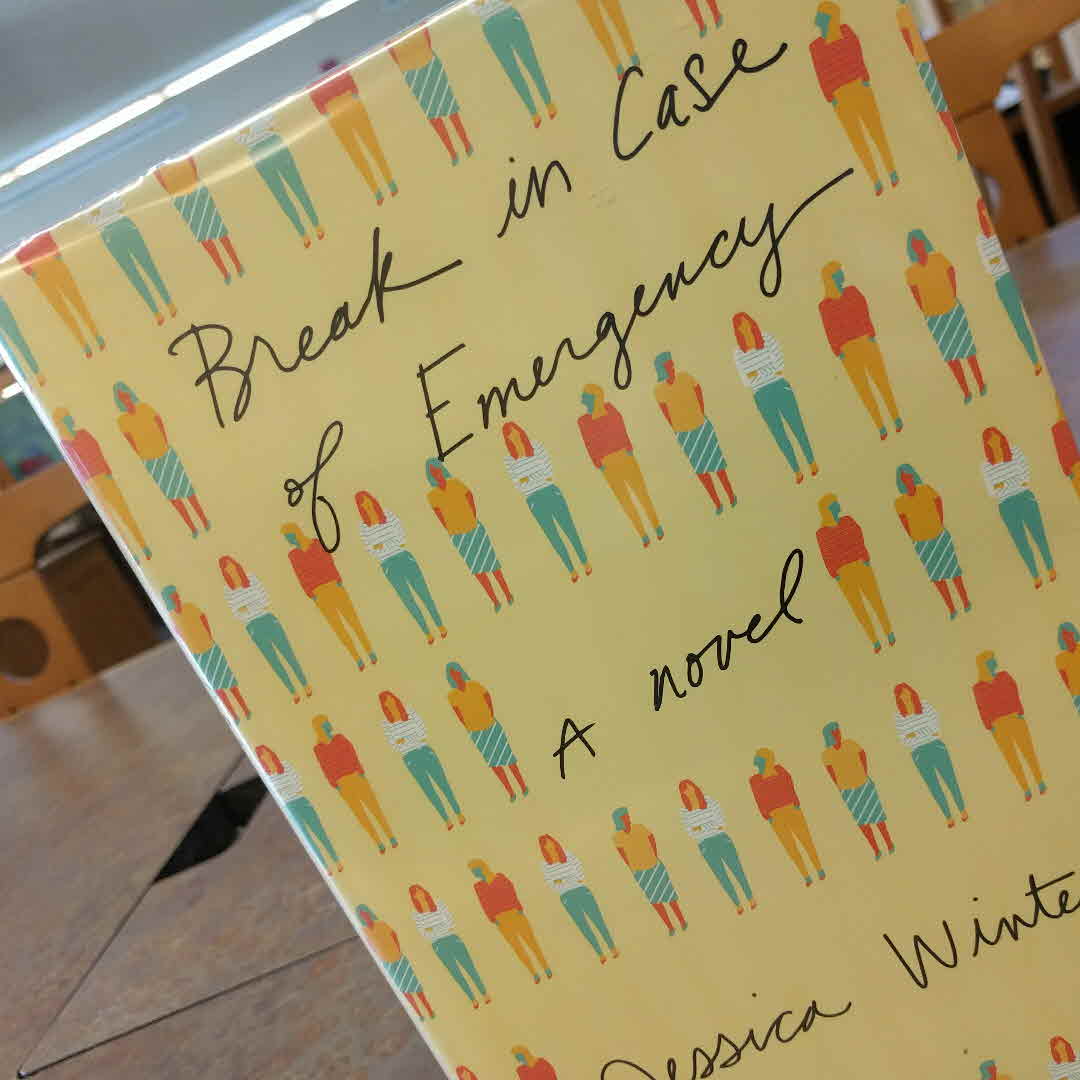 Break in Case
of Emergency
A novel
Jessica Winte